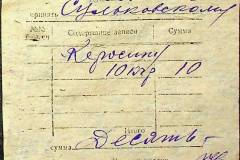 принять Сульковскому
№№ Содержание записи Сумма
Керосину
10 кгр 10
Итого
сумма Десять -